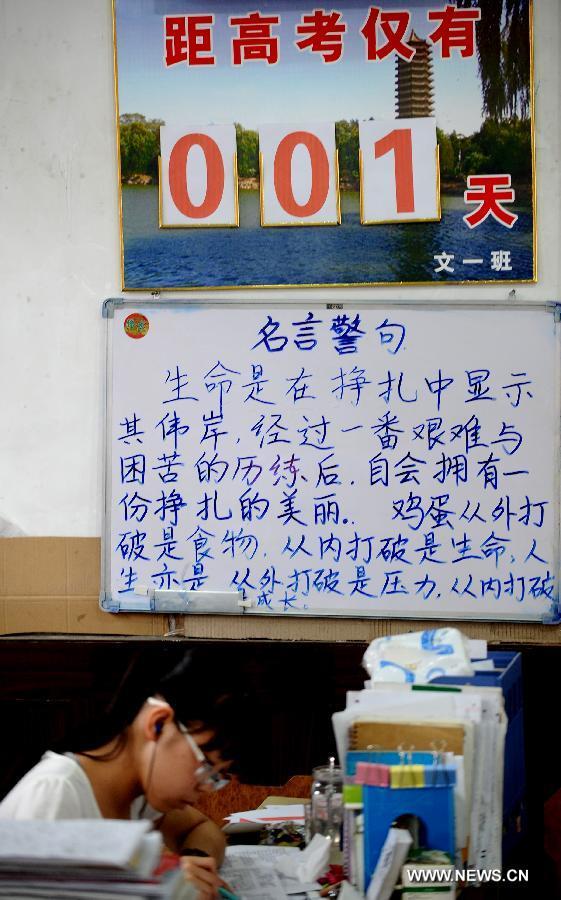 距高考仅有
001天
文一班
名言警句
生命是在挣扎中显示
其伟岸，经过一番艰难与
困苦的历练后，自会拥有一
份挣扎的美丽。鸡蛋从外打
破是食物，从内打破是生命，人
生亦是，从外打破是压力，从内打破
是成长。
WWW.NEWS.CN